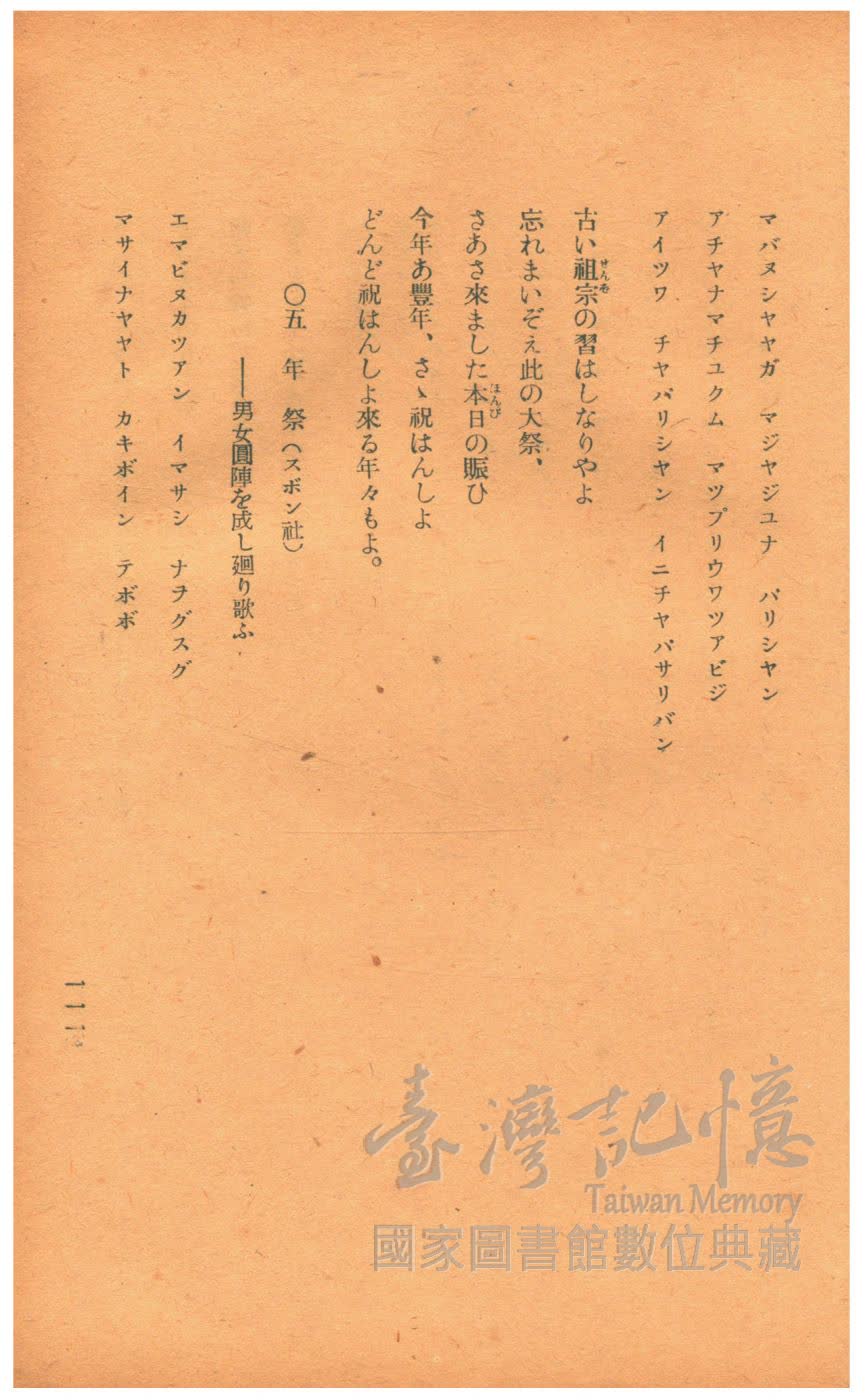 マバヌシヤヤガ　マジヤジユナ　バリシヤン
アチヤナマチユクム　マツプリウワツアビジ
アイツワ　チヤバリシヤン　イニチヤバサリバン
古い祖宗の習はしなりやよ
忘れまいぞえ此の大祭、
さあさ來ました本日の賑ひ
今年あ豐年、さゝ祝はんしよ
どんど祝はんしよ來る年々もよ。
〇五年祭（スボン社）
――男女圓陣を成し廻り歌ふ
エマビヌカツアン　イマサシ　ナヲグスグ
マサイナヤヤト　カキボイン　テボボ
一一一
臺灣記憶
Taiwan Memory
國家圖書館數位典藏